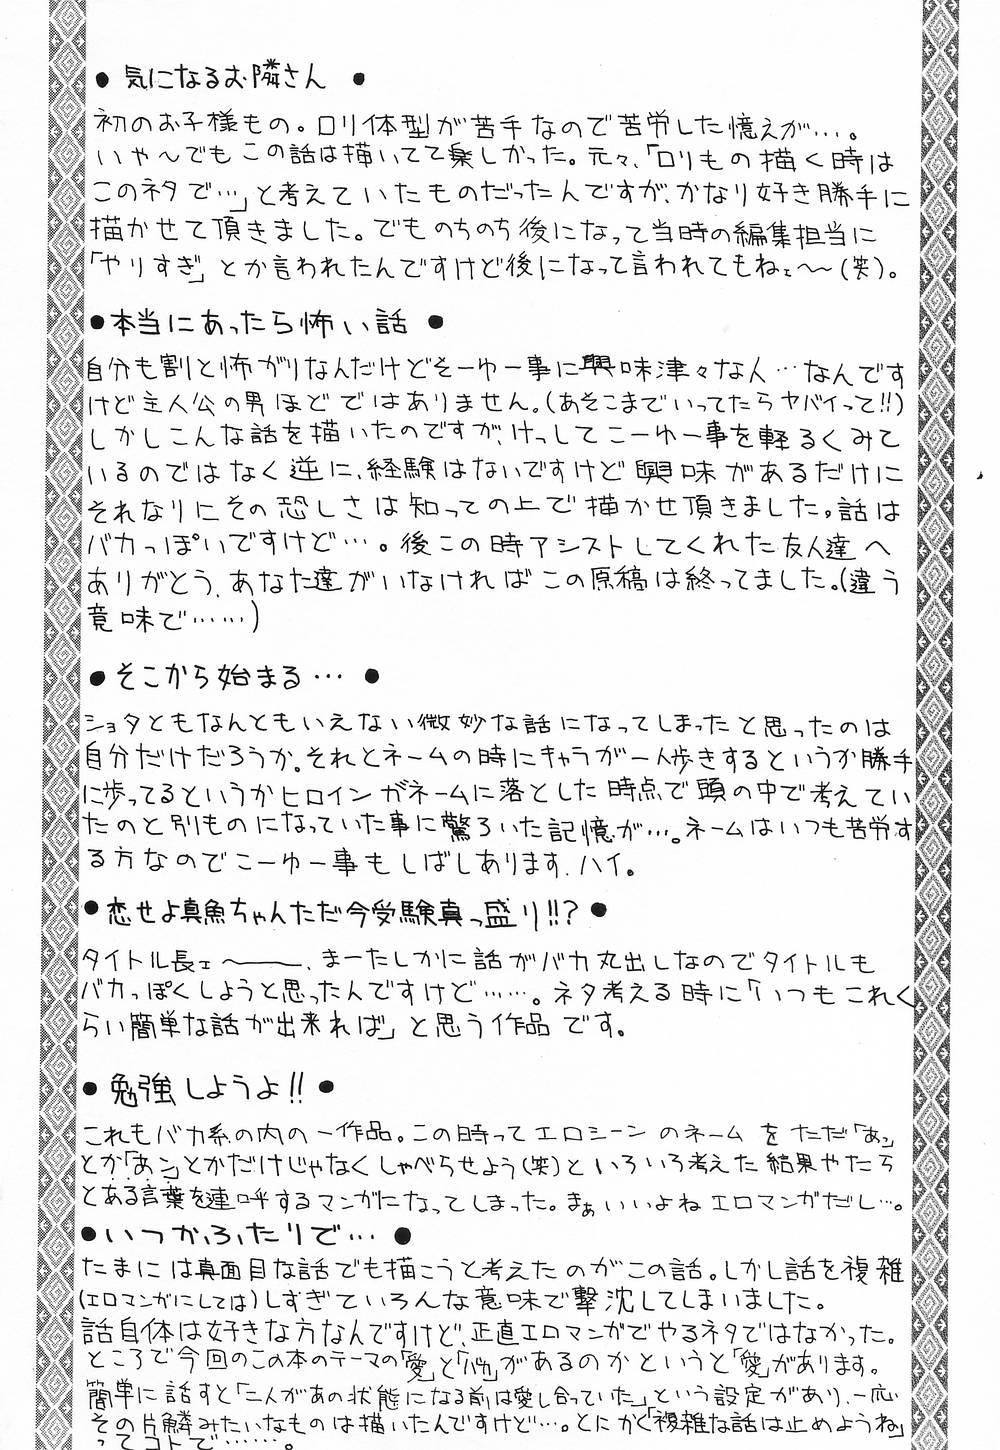 ● 気になるお隣さん ●
初のお子様もの。ロリ体型が苦手なので苦労した憶えが…。
いや〜でもこの話は描いてて楽しかった。元々、「ロリもの描く時は
このネタで…」と考えていたものだったんですが、かなり好き勝手に
描かせて頂きました。でものちのち後になって当時の編集担当に
「やりすぎ」とか言われたんですけど後になって言われてもねェ〜〜(笑)。
●本当にあったら怖い話 ●
自分も割と怖がりなんだけどそーゆー事に興味津々な人…なんです
けど主人公の男ほどではありません。(あそこまでいってたらヤバイって!!)
しかしこんな話を描いたのですが、けっしてこーゆー事を軽るくみて
いるのではなく逆に、経験はないですけど興味があるだけに
それなりにその恐しさは知っての上で描かせ頂きました。話は
バカっぽいですけど…。後この時アシストしてくれた友人達へ
ありがとう、あなた達がいなければこの原稿は終ってました。(違う
意味で……)
●そこから始まる… ●
ショタともなんともいえない微妙な話になってしまったと思ったのは
自分だけだろうか。それとネームの時にキャラが一人歩きするというか勝手
に歩ってるというかヒロインがネームに落とした時点で頭の中で考えてい
たのと別ものになっていた事に驚ろいた記憶が…。ネームはいつも苦労す
る方なのでこーゆー事もしばしあります、ハイ。
●恋せよ真魚ちゃんただ今受験真っ盛り!!?●
タイトル長ェ〜――、まーたしかに話がバカ丸出しなのでタイトルも
バカっぽくしようと思ったんですけど……。ネタ考える時に「いつもこれく
らい簡単な話が出来れば」と思う作品です。
●勉強しようよ!! ●
これもバカ系の内の一作品。この時ってエロシーンのネームをただ「あン」
とか「あン」とかだけじゃなくしゃべらせよう(笑)といろいろ考えた結果やたら
とある言葉を連呼するマンガになってしまった。まぁいいよねエロマンガだし…。
●いつかふたりで… ●
たまには真面目な話でも描こうと考えたのがこの話。しかし話を複雑
(エロマンガにしては)しすぎていろんな意味で撃沈してしまいました。
話自体は好きな方なんですけど、正直エロマンガでやるネタではなかった。
ところで今回のこの本のテーマの「愛」と「バカ」があるのかというと「愛」があります。
簡単に話すと「二人があの状態になる前は愛し合っていた」という設定があり、一応
その片鱗みたいなものは描いたんですけど…。とにかく「複雑な話は止めようね」
ってコトで……。